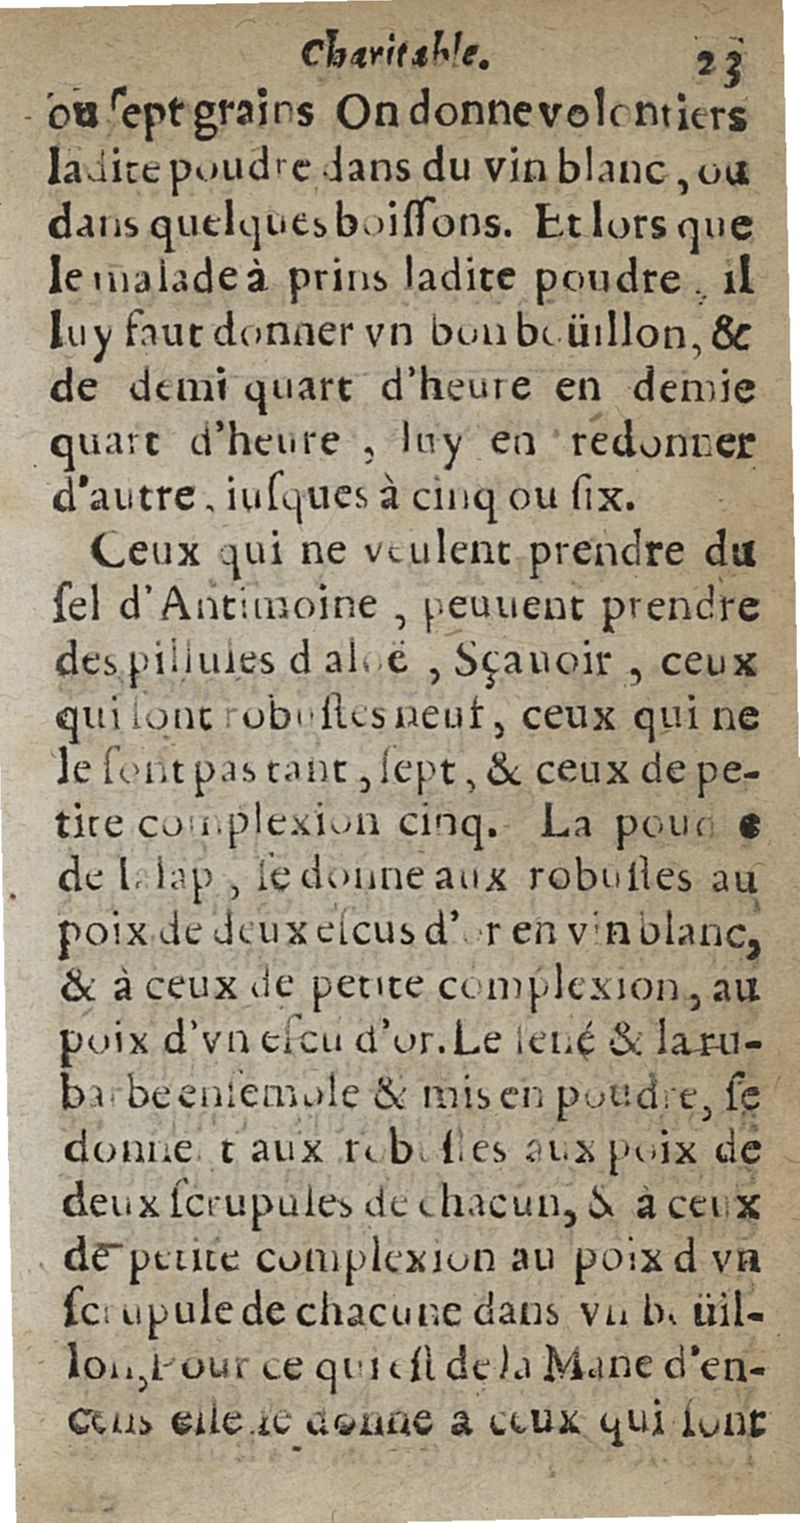 Charitable. 23
ou ſept grains On donne volontiers
ladite poudre dans du vin blanc, ou
dans quelques boiſſons. Et lors que
le malade à prins ladite poudre, il
luy faut donner vn bon boüillon, &
de demi quart d'heure en demie
quart d'heure, luy en redonner
d'autre, iuſques à cinq ou ſix.
Ceux qui ne veulent prendre du
ſel d'Antimoine, peuuent prendre
des pillules d aloë, Sçauoir, ceux
qui ſont robuſtes neuf, ceux qui ne
le ſont pas tant, ſept, & ceux de pe-
tite complexion cinq. La poudre
de Ialap, ſe donne aux robuſtes au
poix de deux eſcus d'or en vin blanc,
& à ceux de petite complexion, au
poix d'vn eſcu d'or. Le ſené & la ru-
barbe enſemble & mis en poudre, ſe
donnent aux robuſtes aux poix de
deux ſcrupules de chacun, & à ceux
de petite complexion au poix d vn
ſcrupule de chacune dans vn boüil-
lon, Pour ce qui eſt de la Mane d'en-
cens elle ſe donne a ceux qui ſont